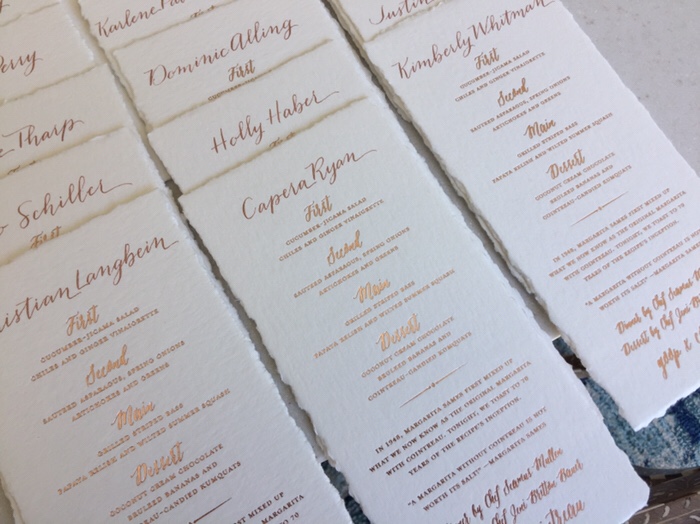 Perry
Tharp
Schiller
First
istian Langbein
First
CUCUMBER-JICAMA SALAD
CHILES AND GINGER VINAIGRETTE
Second
SAUTEED ASPARAGUS, SPRING ONIONS
ARTICHOKES AND GREENS
Main
GRILLED STRIPED BASS
PAPAYA RELISH AND WILTED SUMMER SQUASH
Dessert
COCONUT CREAM CHOCOLATE
BRULEED BANANAS AND
COINTREAU-CANDIED KUMQUATS
MIXED UP
MARGARITA
TO 70
Karlene
Dominic Alling
First
Holly Haber
Capera Ryan
First
CUCUMBER-JICAMA SALAD
CHILES AND GINGER VINAIGRETTE
Second
SAUTEED ASPARAGUS, SPRING ONIONS
ARTICHOKES AND GREENS
Main
GRILLED STRIPED BASS
PAPAYA RELISH AND WILTED SUMMER SQUASH
Dessert
COCONUT CREAM CHOCOLATE
BRULEED BANANAS AND
COINTREAU-CANDIED KUMQUATS
IN 1948, MARGARITA SAMES FIRST MIXED UP
WHAT WE NOW KNOW AS THE ORIGINAL MARGARITA
WITH COINTREAU. TONIGHT, WE TOAST TO 70
YEARS OF THE RECIPE'S INCEPTION.
"A MARGARITA WITHOUT COINTREAU IS NOT
WORTH ITS SALT" —MARGARITA SAMES
by Chef Seamus Mullen
by Chef Joni Britton
Justin
Kimberly Whitman
First
CUCUMBER-JICAMA SALAD
CHILES AND GINGER VINAIGRETTE
Second
SAUTEED ASPARAGUS, SPRING ONIONS
ARTICHOKES AND GREENS
Main
GRILLED STRIPED BASS
PAPAYA RELISH AND WILTED SUMMER SQUASH
Dessert
COCONUT CREAM CHOCOLATE
BRULEED BANANAS AND
COINTREAU-CANDIED KUMQUATS
IN 1948, MARGARITA SAMES FIRST MIXED UP
WHAT WE NOW KNOW AS THE ORIGINAL MARGARITA
WITH COINTREAU. TONIGHT, WE TOAST TO 70
YEARS OF THE RECIPE'S INCEPTION.
"A MARGARITA WITHOUT COINTREAU IS NOT
WORTH ITS SALT" —MARGARITA
Dinner by Chef Seamus
Dessert by Chef Joni